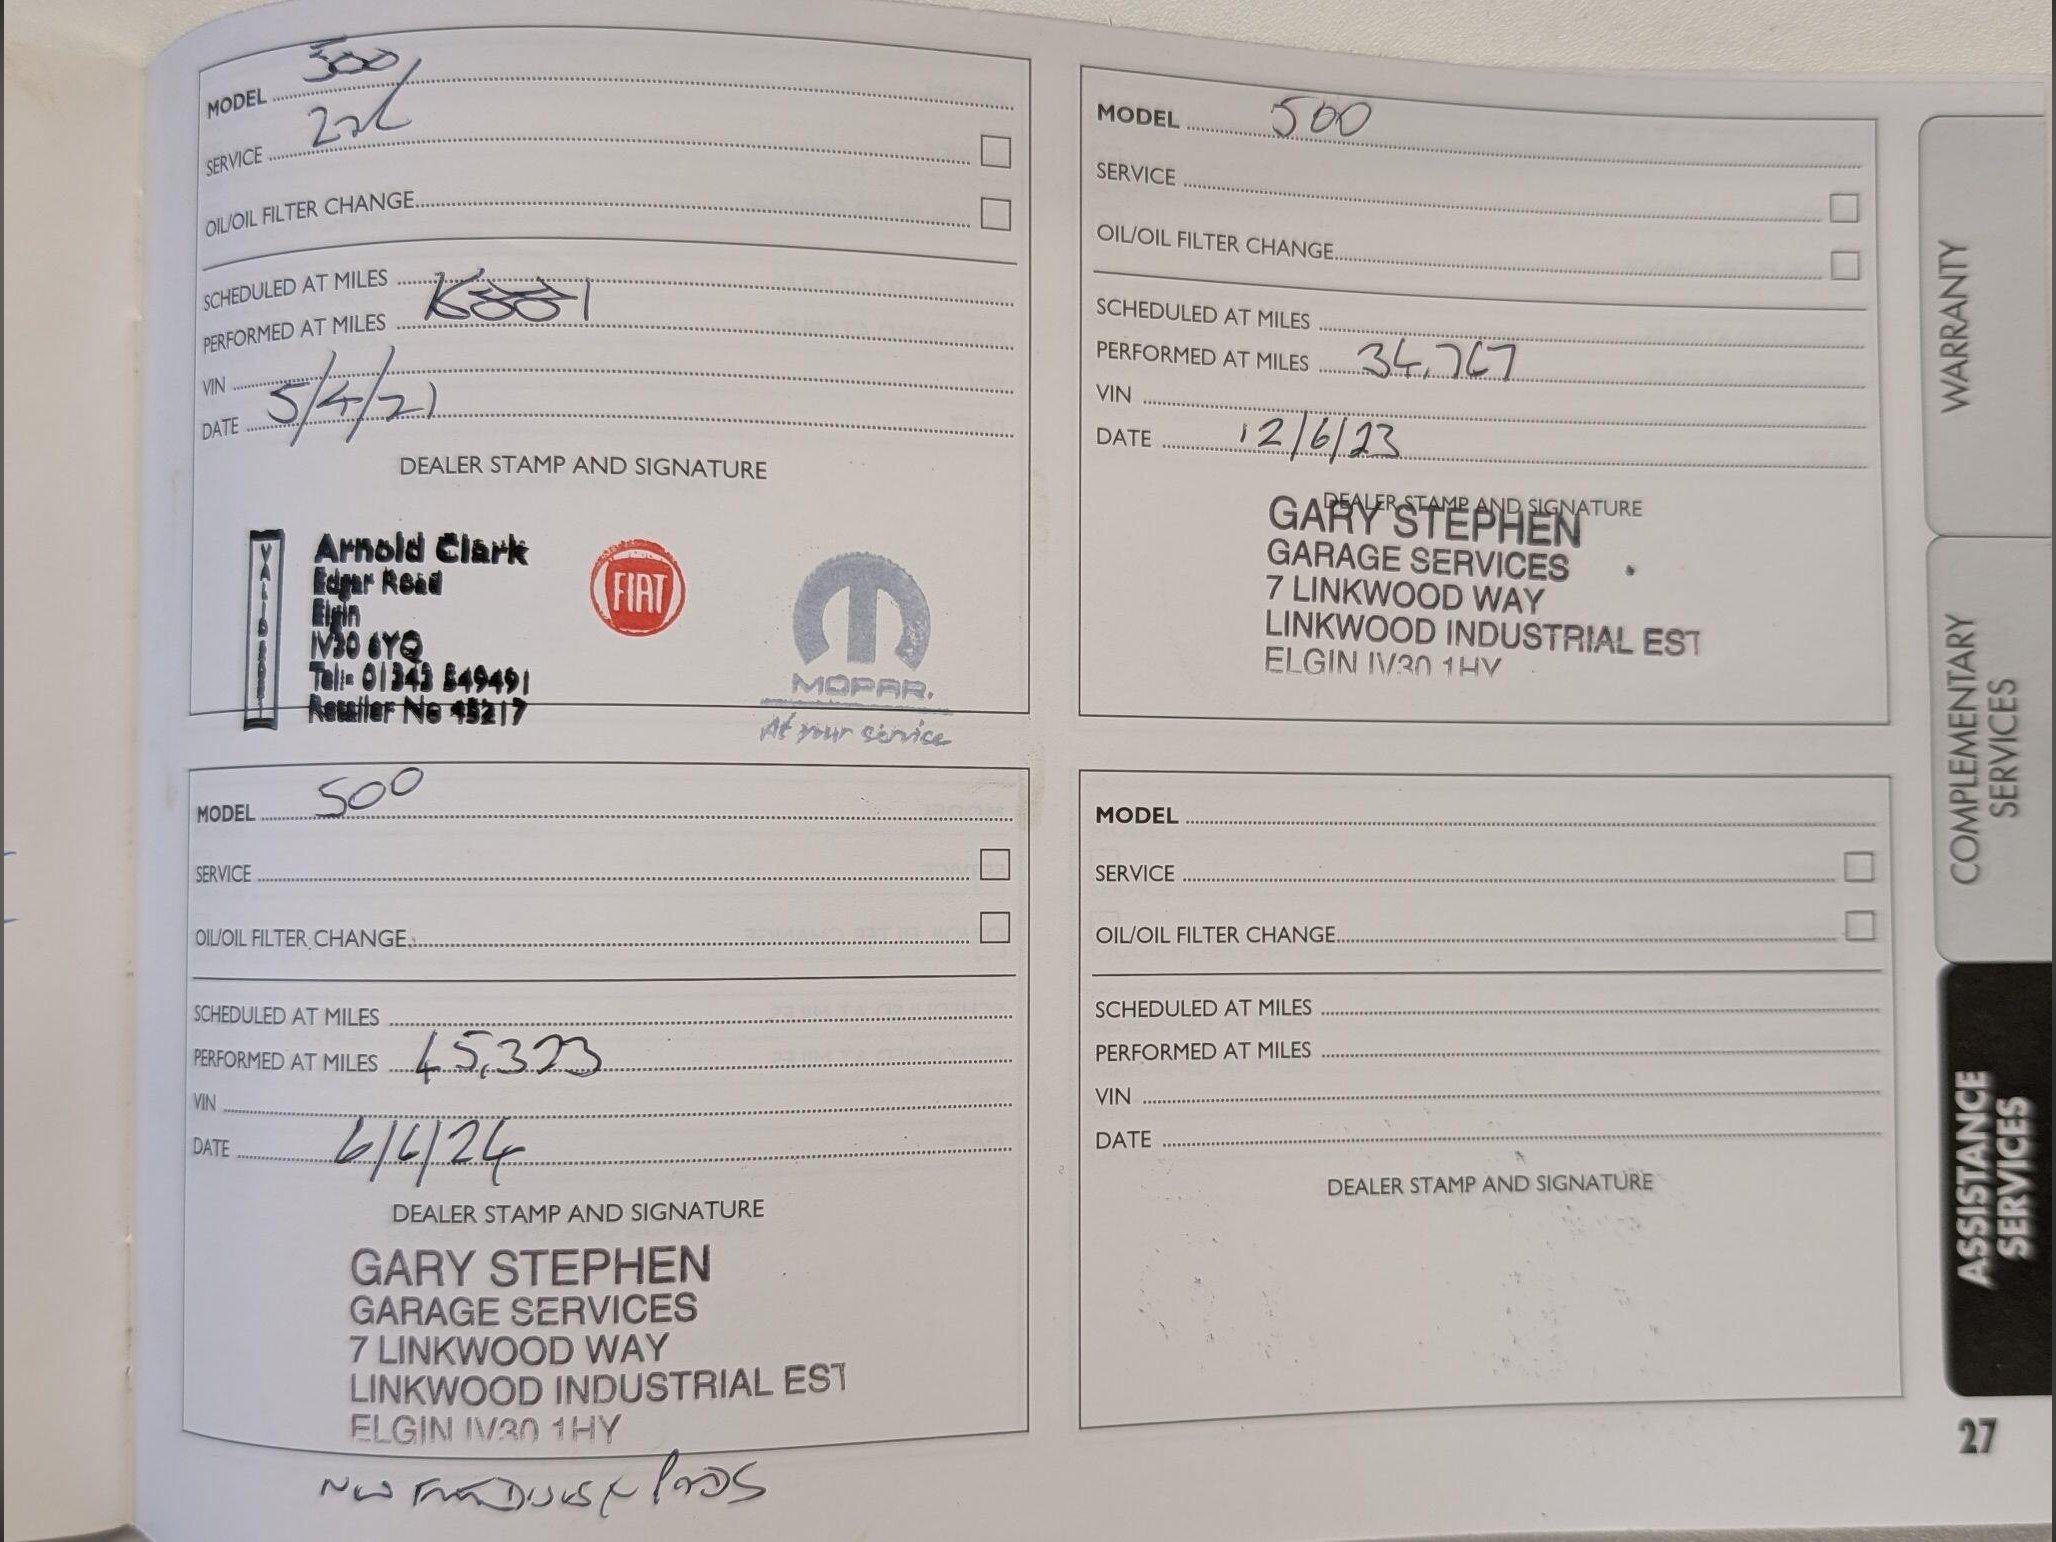 MODEL 500
SERVICE
OIL/OIL FILTER CHANGE
SCHEDULED AT MILES
PERFORMED AT MILES
VIN
DATE 5/4/21
DEALER STAMP AND SIGNATURE
Arnold Clark
Edgar Road
Elgin
IV30 6YQ
Tel:- 01343 549491
Retailer No 45217
FIAT
MOPAR.
At your service
MODEL 500
SERVICE
OIL/OIL FILTER CHANGE
SCHEDULED AT MILES
PERFORMED AT MILES 34,767
VIN
DATE 12/6/23
DEALER STAMP AND SIGNATURE
GARY STEPHEN
GARAGE SERVICES
7 LINKWOOD WAY
LINKWOOD INDUSTRIAL EST
ELGIN IV30 1HY
MODEL 500
SERVICE
OIL/OIL FILTER CHANGE
SCHEDULED AT MILES
PERFORMED AT MILES 45,323
VIN
DATE 6/6/24
DEALER STAMP AND SIGNATURE
GARY STEPHEN
GARAGE SERVICES
7 LINKWOOD WAY
LINKWOOD INDUSTRIAL EST
ELGIN IV30 1HY
NEW FRONT DISCS & PADS
MODEL
SERVICE
OIL/OIL FILTER CHANGE
SCHEDULED AT MILES
PERFORMED AT MILES
VIN
DATE
DEALER STAMP AND SIGNATURE
WARRANTY
COMPLEMENTARY
SERVICES
ASSISTANCE
SERVICES
27